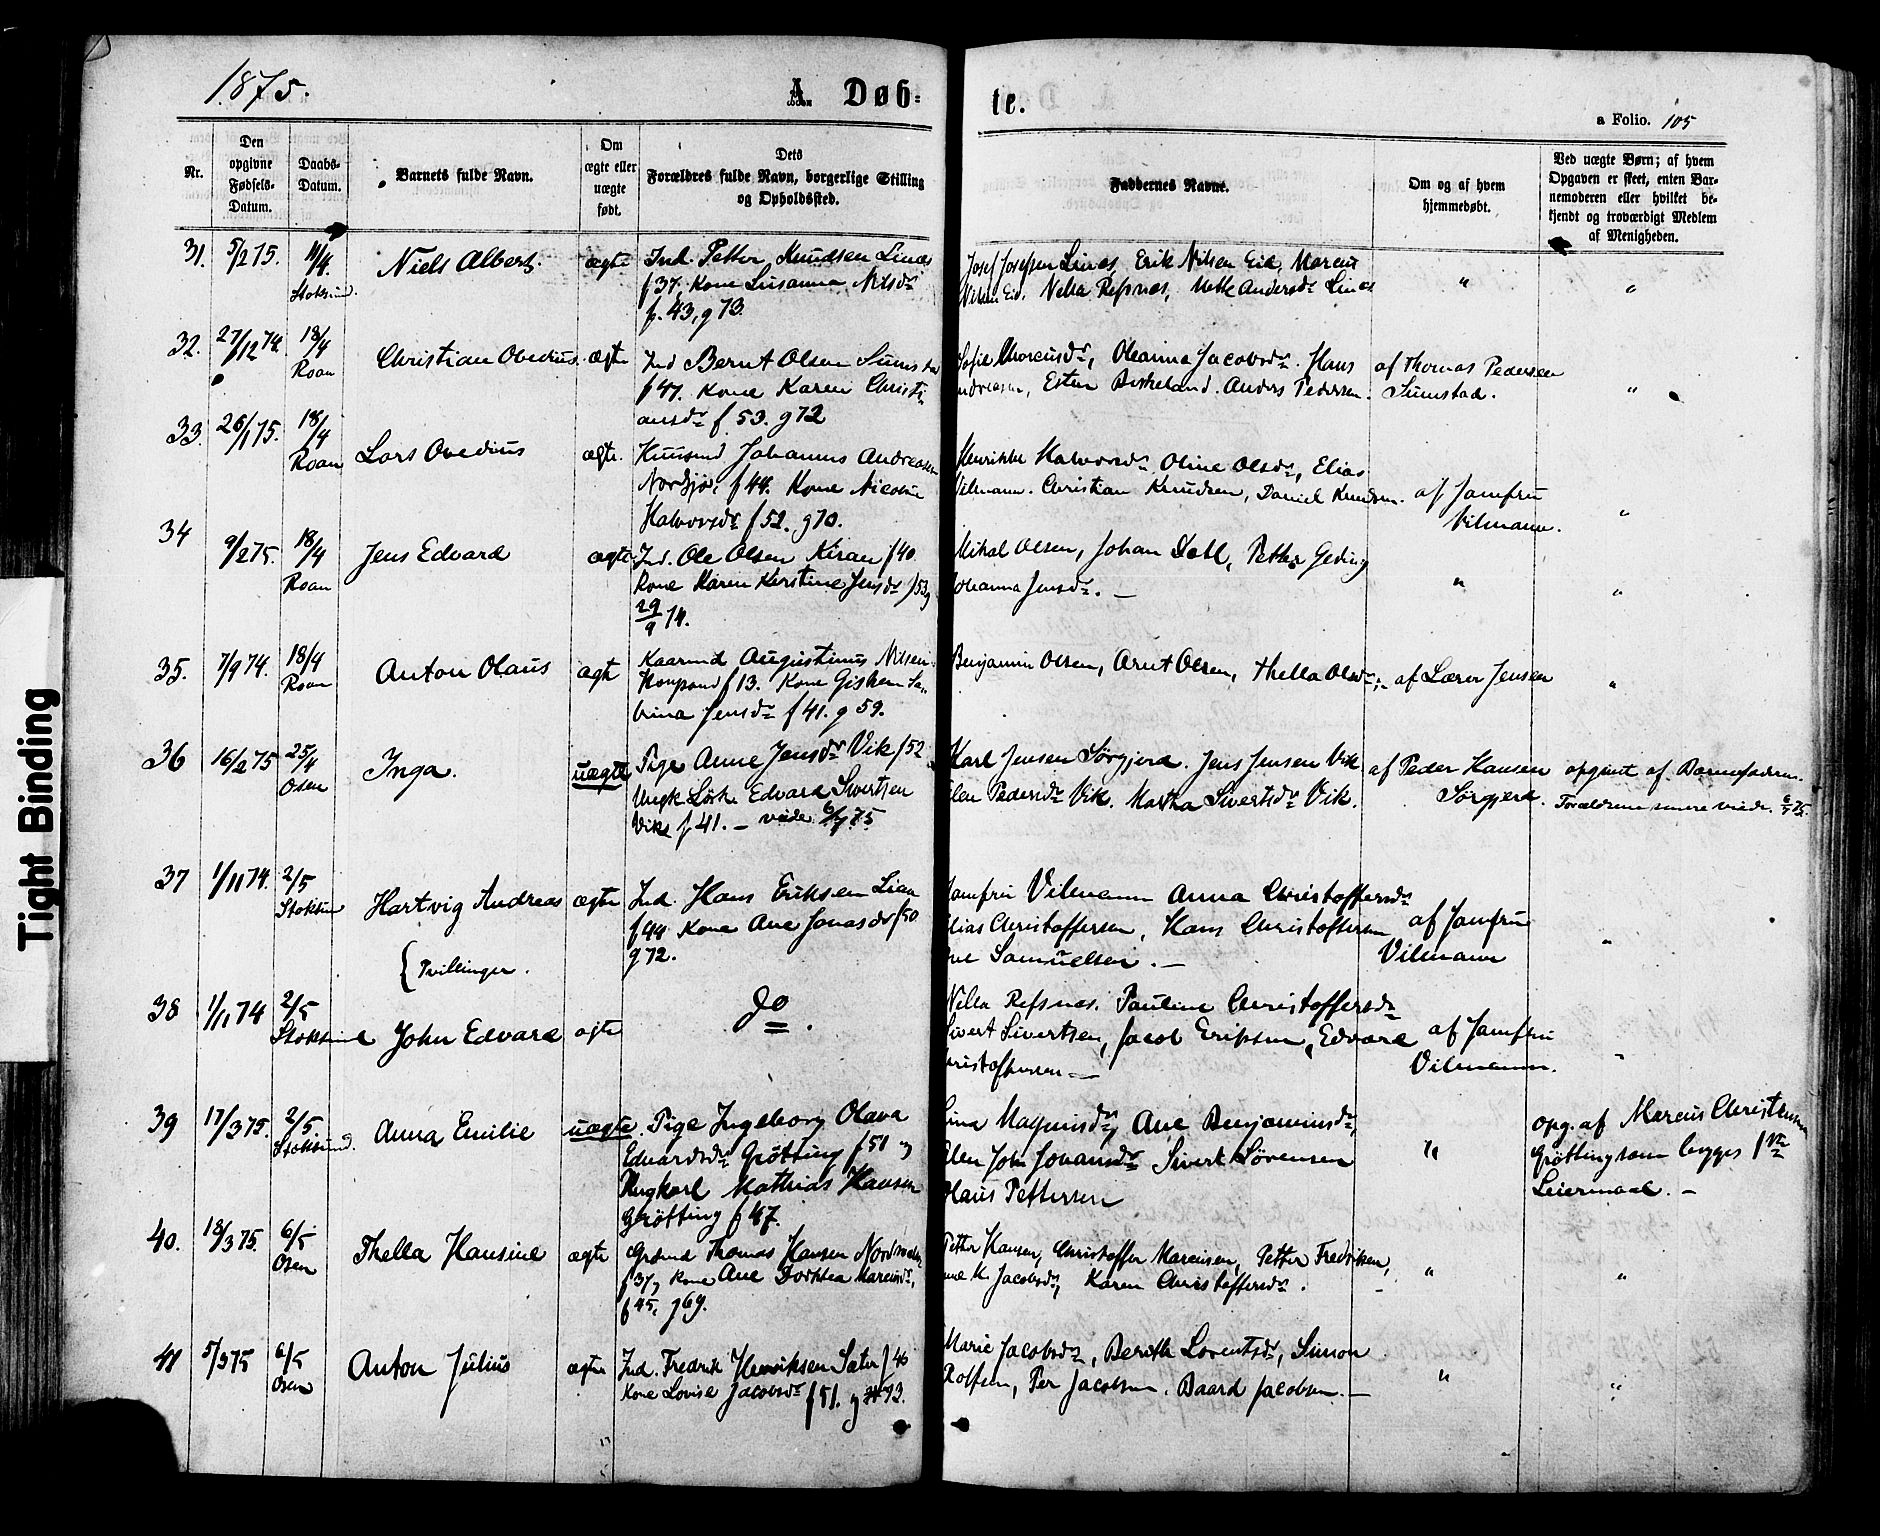 1875.
A. Døb-
te.
a Folio. 105
Nr.
Den opgivne Fødsels-Datum.
Daabs-Datum.
Barnets fulde Navn.
Om ægte eller uægte født.
Dets Forældres fulde Navn, borgerlige Stilling og Opholdssted.
Faddernes Navne.
Om og af hvem hjemmedøbt.
Ved uægte Børn; af hvem Opgaven er skeet, enten Barnemoderen eller hvilket bekjendt og troværdigt Medlem af Menigheden.
31. 5/2 75. 11/4 Stoksund Niels Albert. ægte
Ind. Petter Knudsen Linæs
f 37, Kone Susanna Nilsdr
f. 43, g 73.
Josef Josefsen Linæs, Erik Nilsen Eid, Marcus
Nilsen Eid. Nella Refsnæs, Mette Andersdr Linæs
"
"
32. 27/12 74. 18/4 Roan Christian Ovedius. ægte
Ind Bernt Olsen Sumstad
f 47. Kone Karen Christi-
ansdr f 53. g 72
Sofie Marcusdr, Oleanna Jacobsdr. Hans
Andreasen, Esten Birkeland. Anders Pedersen.
af Thomas Pedersen
Sumstad.
"
33. 26/1 75. 18/4 Roan Lars Ovedius ægte.
Huusmd Johannes Andreasen
Nordsjø, f 44. Kone Nicoline
Halvorsdr f 52. g 70.
Henrikke Halvorsdr Oline Olsdr, Elias
Vilmann. Christian Knudsen, Daniel Knudsen.
af Jomfru
Vilmann.
"
34 9/2 75. 18/4 Roan Jens Edvard ægte
Ind. Ole Olsen Kiran f 40
Kone Karen Kirstine Jensdr f 53 g
29/9 74.
Mikal Olsen, Johan Dahl, Petter Geding
Johanna Jensdr. —
"
"
35. 7/9 74. 18/4 Roan Anton Olaus ægte
Kaarmd Augustinus Nilsen
Hougsand f 13. Kone Gisken Sa-
brina Jensdr f 41. g 59.
Benjamin Olsen, Arnt Olsen, Thella Olsdr;-
af Lærer Jensen
"
36 16/2 75 25/4 Osen Inga. uægte
Pige Anne Jensdr Vik f 52
Ungk Løsk. Edvard Sivertsen
Vik f 41. – viede 6/7 75
Karl Jensen Sørgjerd. Jens Jensen Vik
Elen Pedersdr Vik. Martha Sivertsdr Vik.
af Peder Hansen
Sørgjerd.
opgivet af Barnefaderen.
Forældrene senere viede. 6/7 75.
37 1/11 74. 2/5 Stoksund Hartvig Andreas ægte
Ind. Hans Eriksen Lian
f 44 Kone Ane Jonasdr f 50
g 72.
{ Tvillinger.
Jomfru Vilmann Anna Christoffersdr
Elias Christoffersen, Hans Christoffersen
Ane Samuelsen. —
af Jomfru
Vilmann
"
38 1/11 74 2/5 Stoksund John Edvard ægte
Do.
Nella Refsnæs. Pauline Christoffersdr
Sivert Sivertsen, Jacob Eriksen, Edvard
Christoffersen —
af Jomfru
Vilmann.
"
39 17/3 75. 2/5. Stoksund. Anna Emilie uægte.
Pige Ingeborg Olava
Edvardsdr Grøtting f 51 og
Ungkarl Mathias Hansen
Grøtting f 47.
Lina Magnusdr, Ane Benjaminsdr,
Elen Johansdr Sivert Sørensen
Olaus Pettersen
"
opg. af Marcus Christensen
Grøtting som begges 1ste
Leiermaal. –
40. 18/3 75. 6/5 Osen Thella Hansine ægte
Grdmd Thomas Hansen Nordmelan
f 37, Kone Ane Dorthea Marcusdr,
f 45, g 69.
Petter Hansen, Christoffer Marcusen, Petter Fredriksen,
Ane M. Jacobsdr, Karen Christoffersdr.
"
"
41 5/3 75 6/5 Osen Anton Julius ægte
Ind. Fredrik Henriksen Sæter f 46
Kone Lovise Jacobsdr f 51. g 73.
Marie Jacobsdr, Berith Lorentsdr, Simon
Rolfsen, Per Jacobsen. Baard Jacobsen. —
"
"
Tight Binding